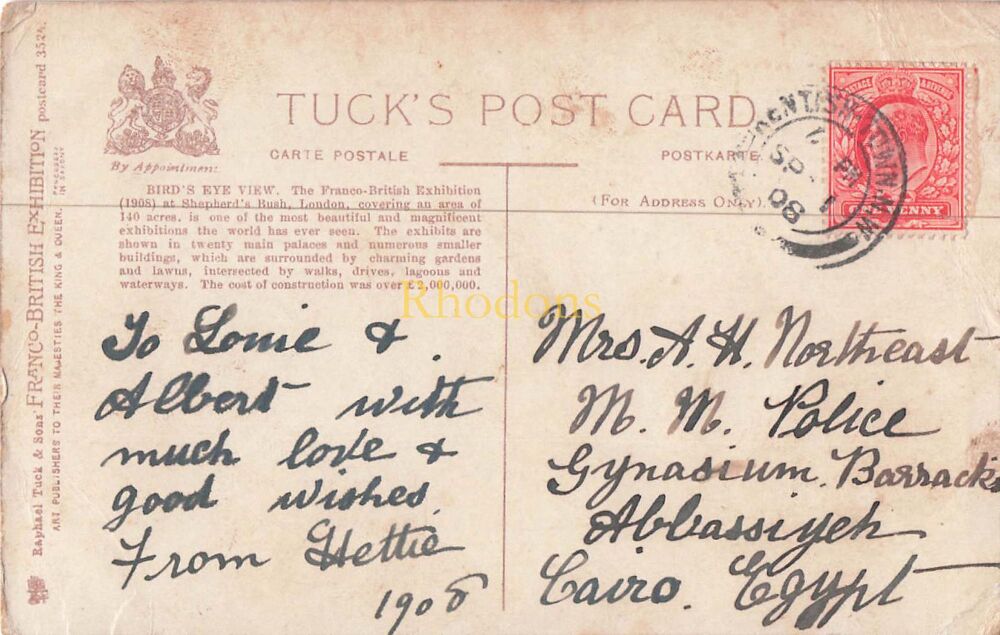 TUCK'S POST CARD
CARTE POSTALE
POSTKARTE
(FOR ADDRESS ONLY).
By Appointment
BIRD'S EYE VIEW. The Franco-British Exhibition
(1908) at Shepherd's Bush, London, covering an area of
140 acres, is one of the most beautiful and magnificent
exhibitions the world has ever seen. The exhibits are
shown in twenty main palaces and numerous smaller
buildings, which are surrounded by charming gardens
and lawns, intersected by walks, drives, lagoons and
waterways. The cost of construction was over £2,000,000.
Rhodons
To Louie &
Albert with
much love &
good wishes.
From Hettie
1908
Mrs. A. H. Northeast
M. M. Police
Gynasium. Barracks
Abbassiyeh
Cairo. Egypt
Raphael Tuck & Sons' FRANCO-BRITISH EXHIBITION postcard 352
ART PUBLISHERS TO THEIR MAJESTIES THE KING & QUEEN.
PROCESSED
IN SAXONY
POSTAGE & REVENUE
ONE PENNY
KENTISH TOWN N.W.
PM
SP 1
08